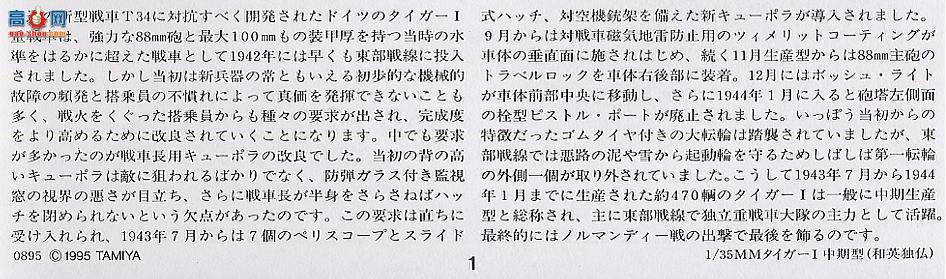 新型戦車T34に対抗すべく開発されたドイツのタイガーI
重戦車は、強力な88mm砲と最大100mmもの装甲厚を持つ当時の水
準をはるかに超えた戦車として1942年には早くも東部戦線に投入
されました。しかし当初は新兵器の常ともいえる初歩的な機械的
故障の頻発と搭乗員の不慣れによって真価を発揮できないことも
多く、戦火をくぐった搭乗員からも種々の要求が出され、完成度
をより高めるために改良されていくことになります。中でも要求
が多かったのが戦車長用キューポラの改良でした。当初の背の高
いキューポラは敵に狙われるばかりでなく、防弾ガラス付き監視
窓の視界の悪さが目立ち、さらに戦車長が半身をさらさねばハッ
チを閉められないという欠点があったのです。この要求は直ちに
受け入れられ、1943年7月からは7個のペリスコープとスライド
0895 ©1995 TAMIYA
式ハッチ、対空機銃架を備えた新キューポラが導入されました。
9月からは対戦車磁気地雷防止用のツィメリットコーティングが
車体の垂直面に施されはじめ、続く11月生産型からは88mm主砲の
トラベルロックを車体右後部に装着。12月にはボッシュ・ライト
が車体前部中央に移動し、さらに1944年1月に入ると砲塔左側面
の栓型ピストル・ポートが廃止されました。いっぽう当初からの
特徴だったゴムタイヤ付きの大転輪は踏襲されていましたが、東
部戦線では悪路の泥や雪から起動輪を守るためしばしば第一転輪
の外側一個が取り外されていました。こうして1943年7月から1944
年1月までに生産された約470輌のタイガーIは一般に中期生産
型と総称され、主に東部戦線で独立重戦車大隊の主力として活躍。
最終的にはノルマンディー戦の出撃で最後を飾るのです。
1/35MMタイガーI中期型(和英独仏)
1